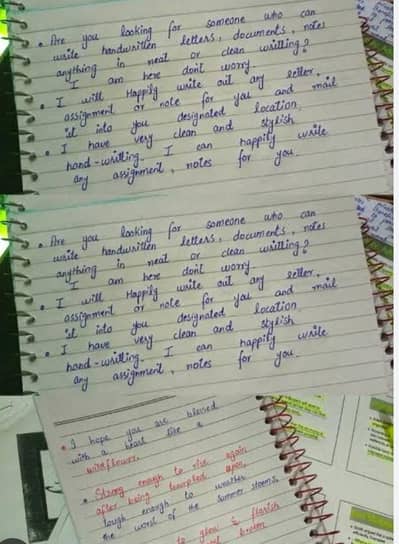 • Are you looking for someone who can
write handwritten letters, documents, notes
anything in neat or clean writting?
I am here don't worry.
• I will Happily write out any letter,
assignment or note for you and mail
it into you designated location.
• I have very clean and stylish
hand-writting. I can happily write
any assignment, notes for you.
• Are you looking for someone who can
write handwritten letters, documents, notes
anything in neat or clean writting?
I am here don't worry.
• I will Happily write out any letter,
assignment or note for you and mail
it into you designated location.
• I have very clean and stylish
hand-writting. I can happily write
any assignment, notes for you.
• I hope you are blessed
with a heart like a
wildflower.
• Strong enough to rise again
after being trampled upon,
tough enough to weather
the worst of the summer storms,
to grow & flourish